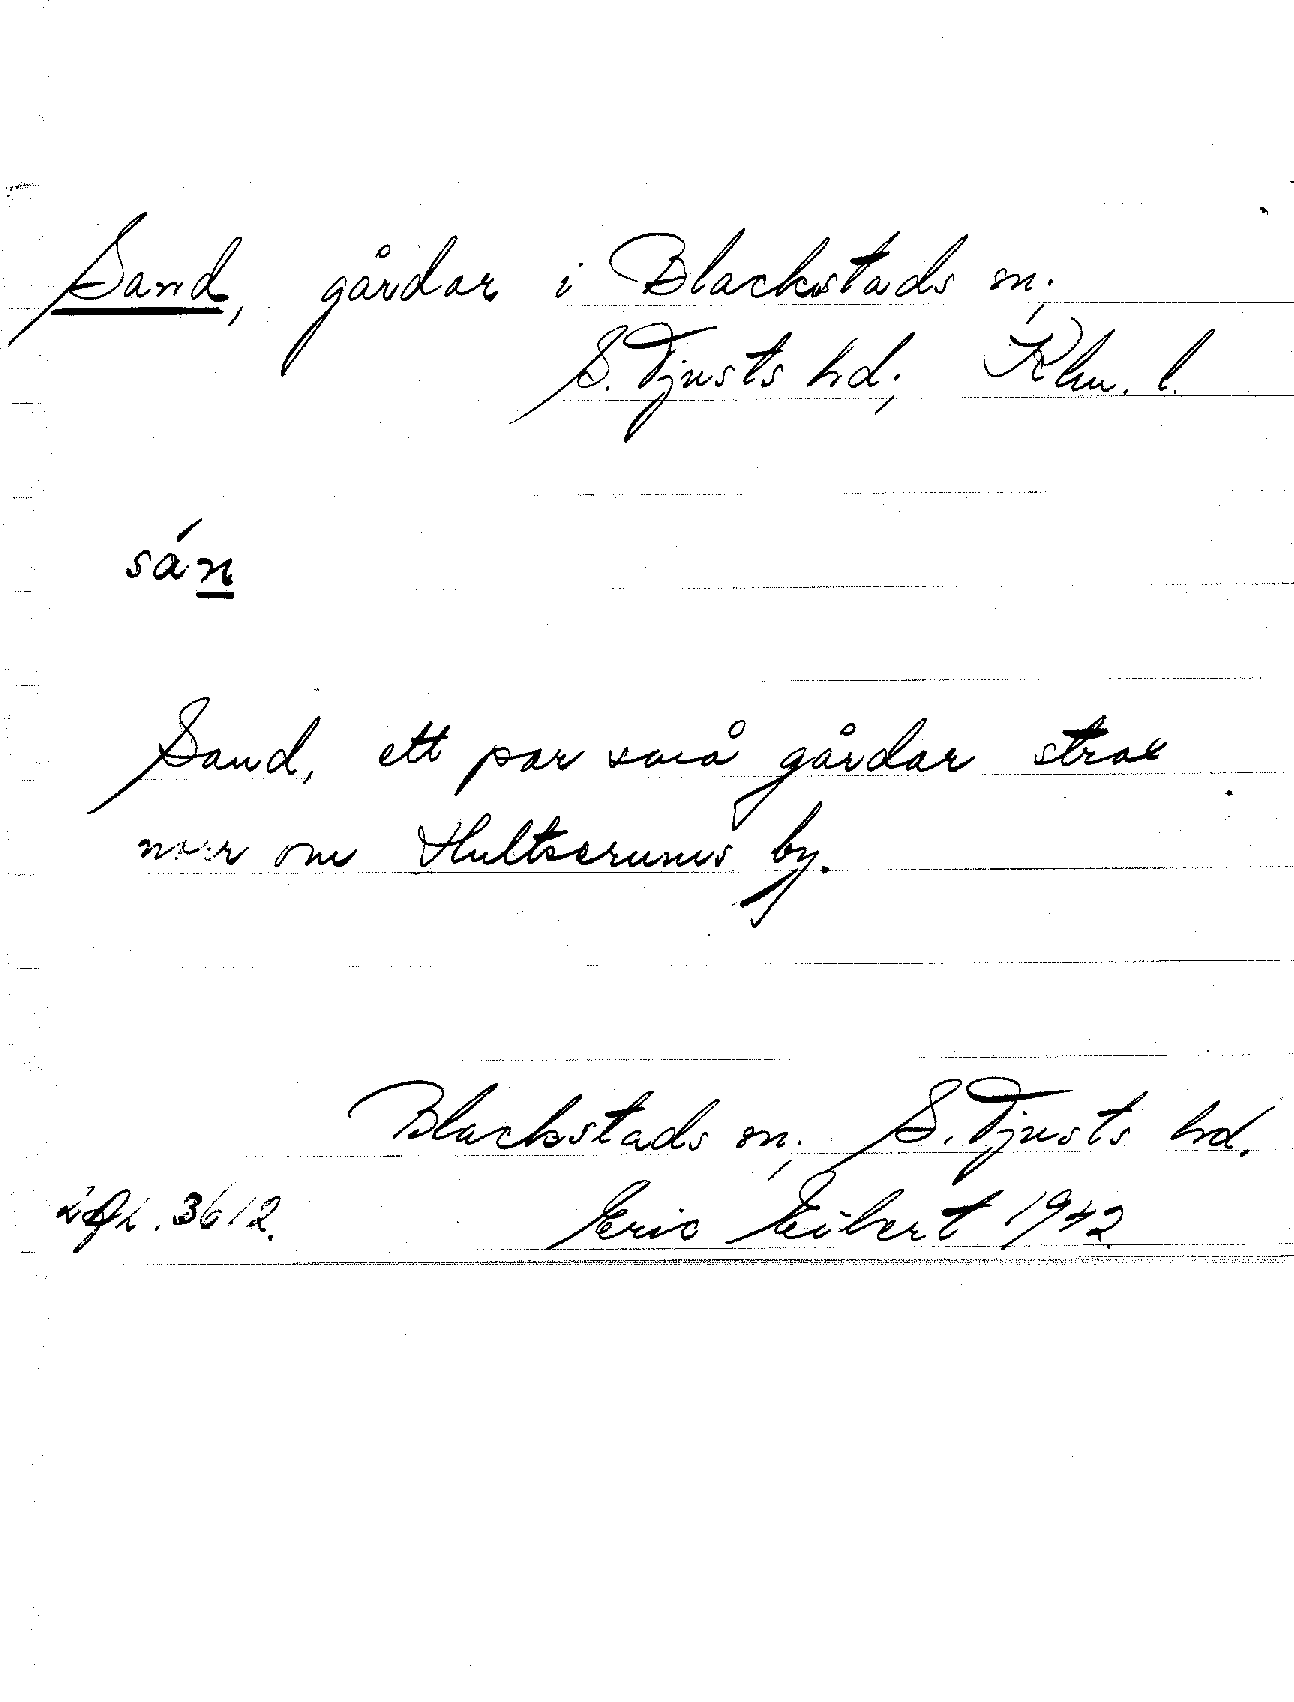 Sand, gårdar i Blackstads sn;
S. Tjusts hd; Klm. l.
sán
Sand, ett par små gårdar strax
norr om Hultserums by.
Blackstads sn; S. Tjusts hd.
3612. Eric Eibert 1942